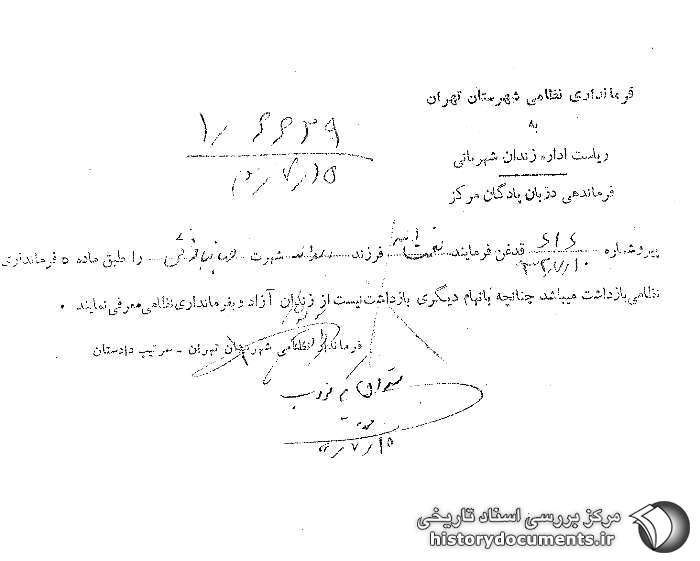 فرمانداری نظامی شهرستان تهران
به
ریاست اداره زندان شهربانی
فرماندهی دژبان پادگان مرکز
۱٫ ۶۶۳۹
۱۵٫۷٫
پیروشماره ۶۱۶ ۳۲٫۷٫۱۰ قدغن فرمایند نعمت اله فرزند شهرت را طبق ماده ۵ فرمانداری
نظامی بازداشت میباشد چنانچه باتهام دیگری بازداشت نیست از زندان آزاد و بفرمانداری نظامی معرفی نمایند .
فرماندار نظامی شهرستان تهران - سرتیپ دادستان
۱۵٫۷٫
مرکز بررسی اسناد تاریخی
historydocuments.ir